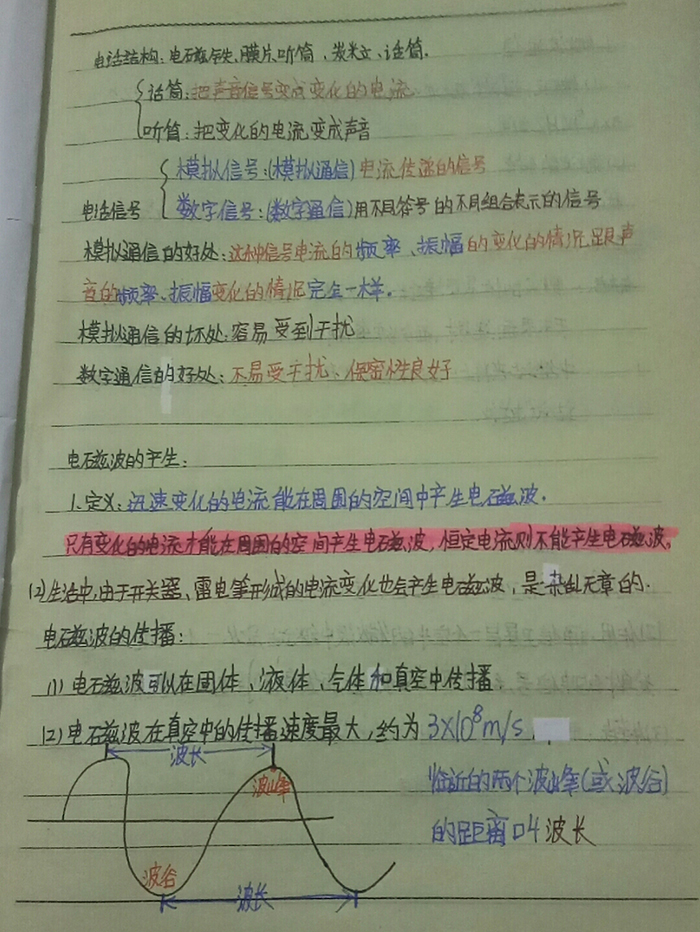 电话结构:电磁铁、膜片、听筒、发米文、话筒.
话筒:把声音信号变成变化的电流
听筒:把变化的电流变成声音
模拟信号:(模拟通信)电流传递的信号
电话信号
数字信号:(数字通信)用不同符号的不同组合表示的信号
模拟通信的好处:这种信号电流的频率、振幅的变化的情况跟声
音的频率、振幅变化的情况完全一样.
模拟通信的坏处:容易受到干扰
数字通信的好处:不易受干扰、保密性良好
电磁波的产生:
1.定义:迅速变化的电流能在周围的空间中产生电磁波.
只有变化的电流才能在周围的空间产生电磁波,恒定电流则不能产生电磁波。
(2)生活中,由于开关器、雷电等形成的电流变化也会产生电磁波,是杂乱无章的.
电磁波的传播:
(1)电磁波可以在固体、液体、气体和真空中传播.
(2)电磁波在真空中的传播速度最大,约为3×10⁸m/s.
波长
波峰
临近的两个波峰(或波谷)
的距离叫波长
波谷
波长